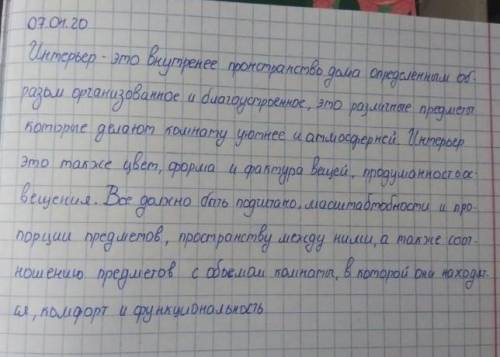 07.04.20
Интерьер - это внутренее пронстранство дома определенным об-
разом организованное и благоустроенное, это различные предметы
которые делают комнату уютнее и атмосферней. Интерьер
это также цвет, форма и фактура вещей, продуманность ос-
вещения. Все должно быть подчитано, масштабтобности и про-
порции предметов, пространству между ними, а также соот-
ношению предметов с объемам комнаты, в которой они находят-
ся, комфорт и функциональность